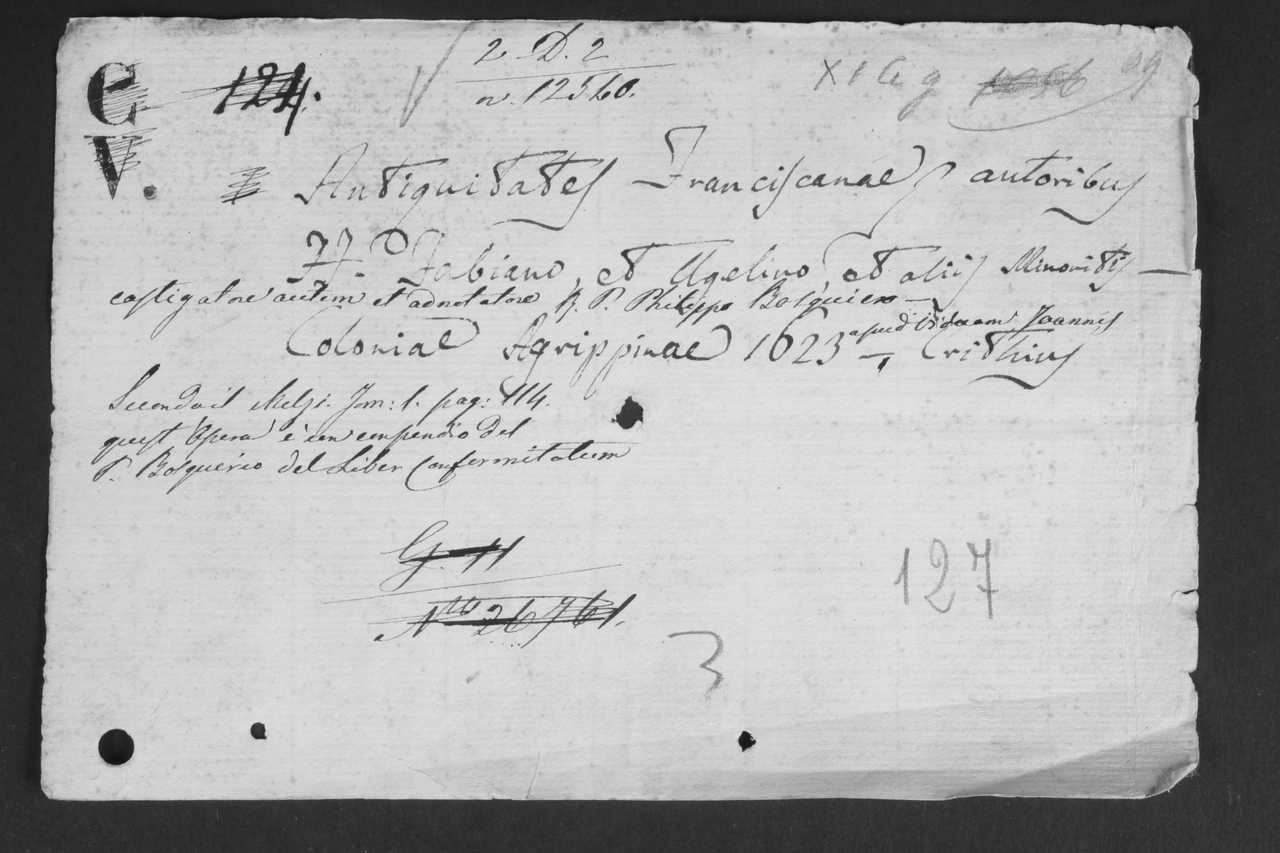 C
V.
124.
2 D. 2
n. 12560.
X 1 G g 1656 09
Antiquitates Franciscanae, autoribus
FF. Fabiano, et Ugelino, et aliis Minoritis —
castigatore autem et adnotatore R. P. Philippo Bosquiero —
Coloniae Agrippinae 1623 — apud Viduam Joannis
Crithius
Secondo il Melzi. Tom: 1. pag: 114.
quest' Opera è un compendio del
P. Bosquerio del Liber Conformitatum
G. 11
N.º 26761.
127
3